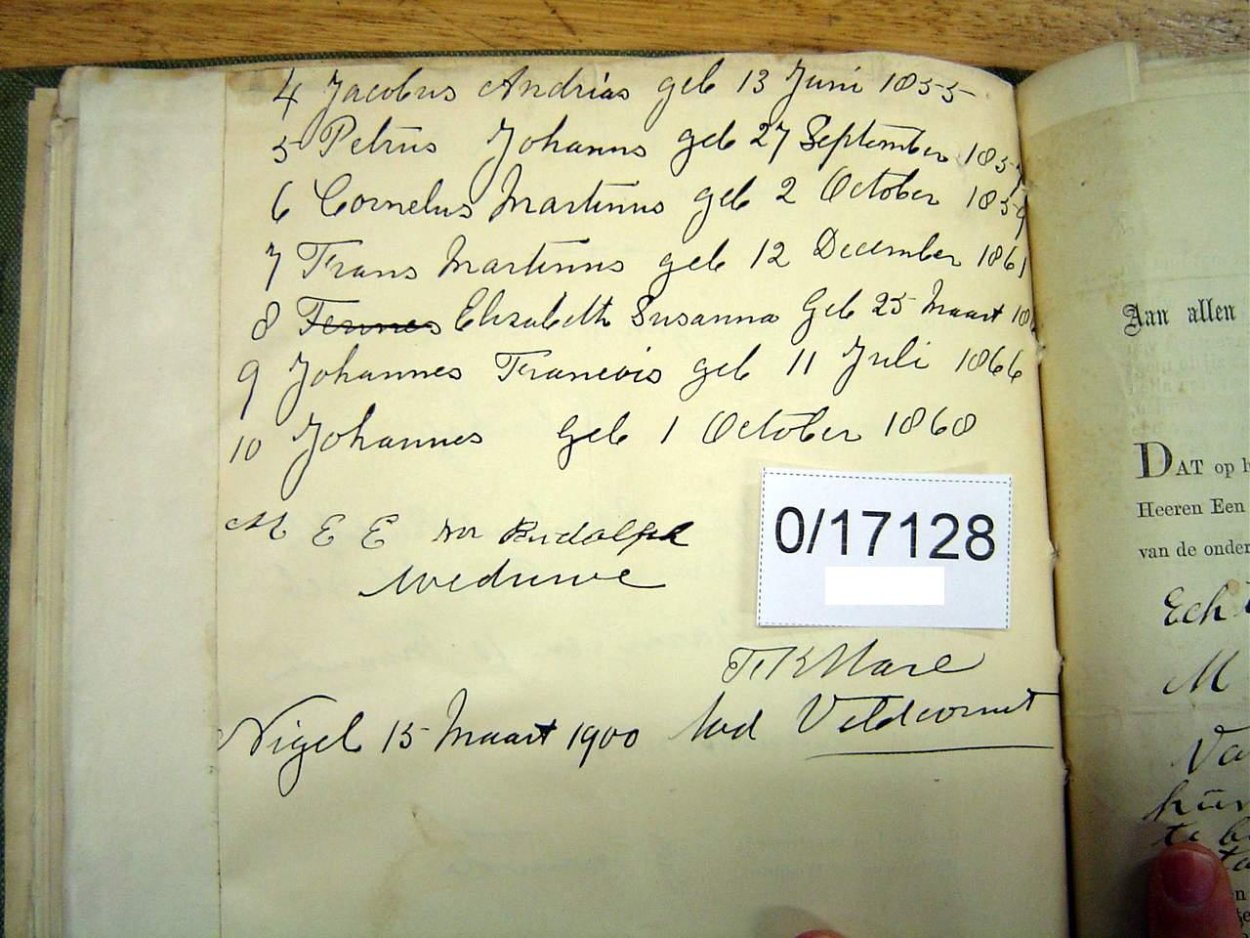 4 Jacobus Andrias geb 13 Juni 1855
5 Petrus Johanns geb 27 September 1857
6 Cornelus Martinus geb 2 October 1859
7 Frans Martinus geb 12 December 1861
8 Elisabeth Susanna Geb 25 Maart
9 Johannes Francois geb 11 Juli 1866
10 Johannes Geb 1 October 1868
M E E Rudolph
Weduwe
0/17128
Mare
Veldcornet
Nigel 15 Maart 1900
Aan allen
DAT op
Heeren Een
van de
Ech
M
Va